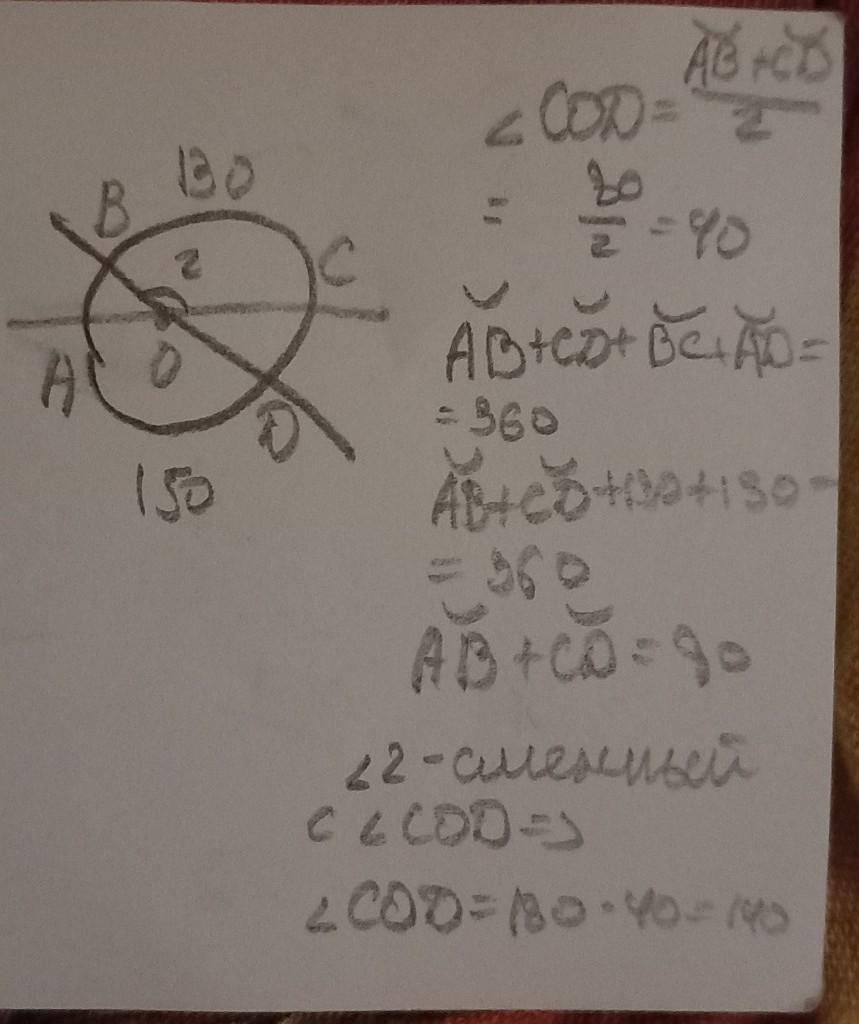 130
B
2
C
A
O
D
150
∠COD = (A͝B + C͝D)/2
= 80/2 = 40
A͝B + C͝D + B͝C + A͝D =
= 360
A͝B + C͝D + 130 + 130 =
= 360
A͝B + C͝D = 80
∠2 - смежный
с ∠COD =>
∠COD = 180 - 40 = 140